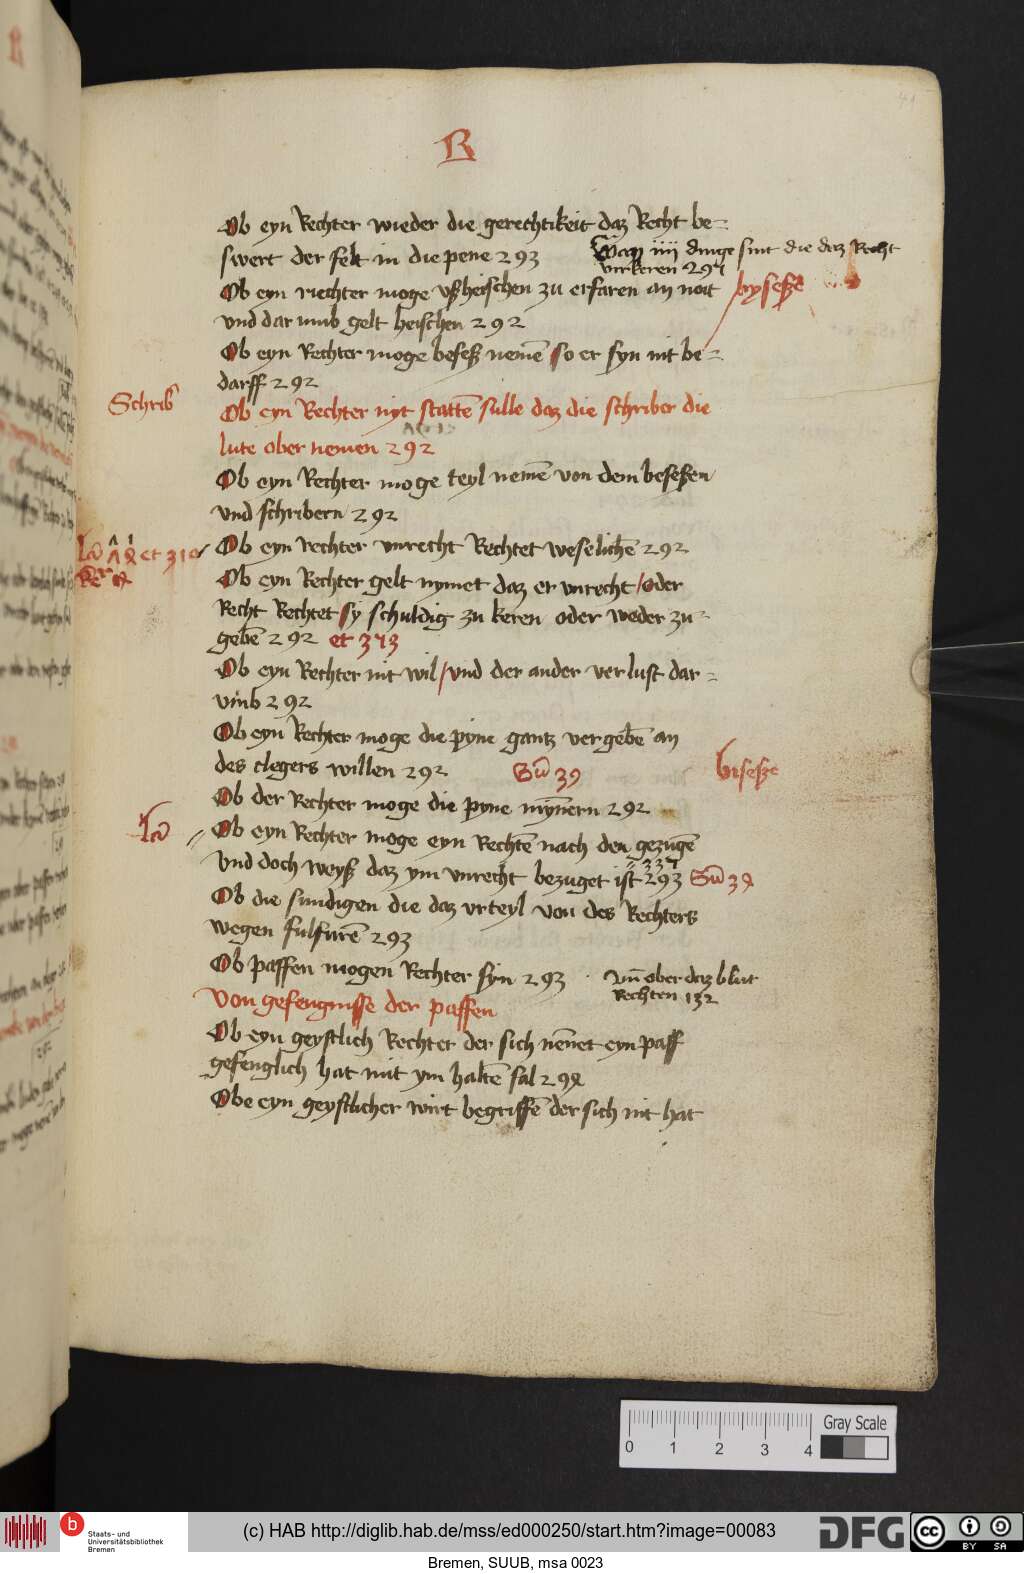 41
R
Ob eyn Rechter wieder die gerechtikeit daz Recht be=
swert der felt in die pene 293
Waz iiij dinge sint die daz Recht
virkeren 297
Ob eyn richter moge vßheischen zu erfaren an noit
byseße
vnd dar vmb gelt heischen 292
Ob eyn Rechter moge beseß nemē so er syn nit be=
darff 292
Schrib
Ob eyn Rechter nyt stattē sulle daz die schriber die
lute ober nemen 292
Ob eyn Rechter moge teyl nemē von dem beseßen
vnd schribern 292
et 310
Ob eyn rechter vnrecht Rechtet weselichē 292
Ob eyn Rechter gelt nymet daz er vnrecht / oder
Recht Rechtet sy schuldig zu keren oder weder zu=
gebē 292 et 373
Ob eyn Rechter nit wil / vnd der ander verlust dar=
vmb 292
Ob eyn Rechter moge die pyne gantz vergebē an
des clegers willen 292
Sū 39
biseße
Ob der Rechter moge die pyne mynern 292
Ob eyn Rechter moge eyn Rechtē nach den gezugē
vnd doch weyß daz ym vnrecht bezuget ist 293 Sū 38
337
Ob die sundigen die daz vrteyl von des Rechters
wegen fulfurē 293
Ob paffen mogen Rechter syn 293
vn̄ ober daz blut
Rechten 132
Von gefengnisse der paffen
Ob eyn geystlich Rechter der sich nēnet eyn paff
gefenglich hat mit ym haltē sal 298
Obe eyn geystlicher wirt begriffē der sich nit hat
0 1 2 3 4
Gray Scale
b
Staats- und
Universitätsbibliothek
Bremen
(c) HAB http://diglib.hab.de/mss/ed000250/start.htm?image=00083
DFG
cc
BY SA
Bremen, SUUB, msa 0023